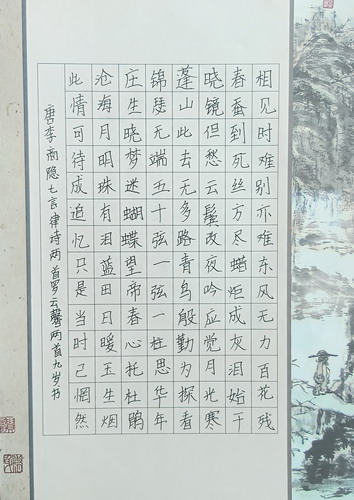 相见时难别亦难东风无力百花残
春蚕到死丝方尽蜡炬成灰泪始干
晓镜但愁云鬓改夜吟应觉月光寒
蓬山此去无多路青鸟殷勤为探看
锦瑟无端五十弦一弦一柱思华年
庄生晓梦迷蝴蝶望帝春心托杜鹃
沧海月明珠有泪蓝田日暖玉生烟
此情可待成追忆只是当时已惘然
唐李商隐七言律诗两首罗云馨两首九岁书